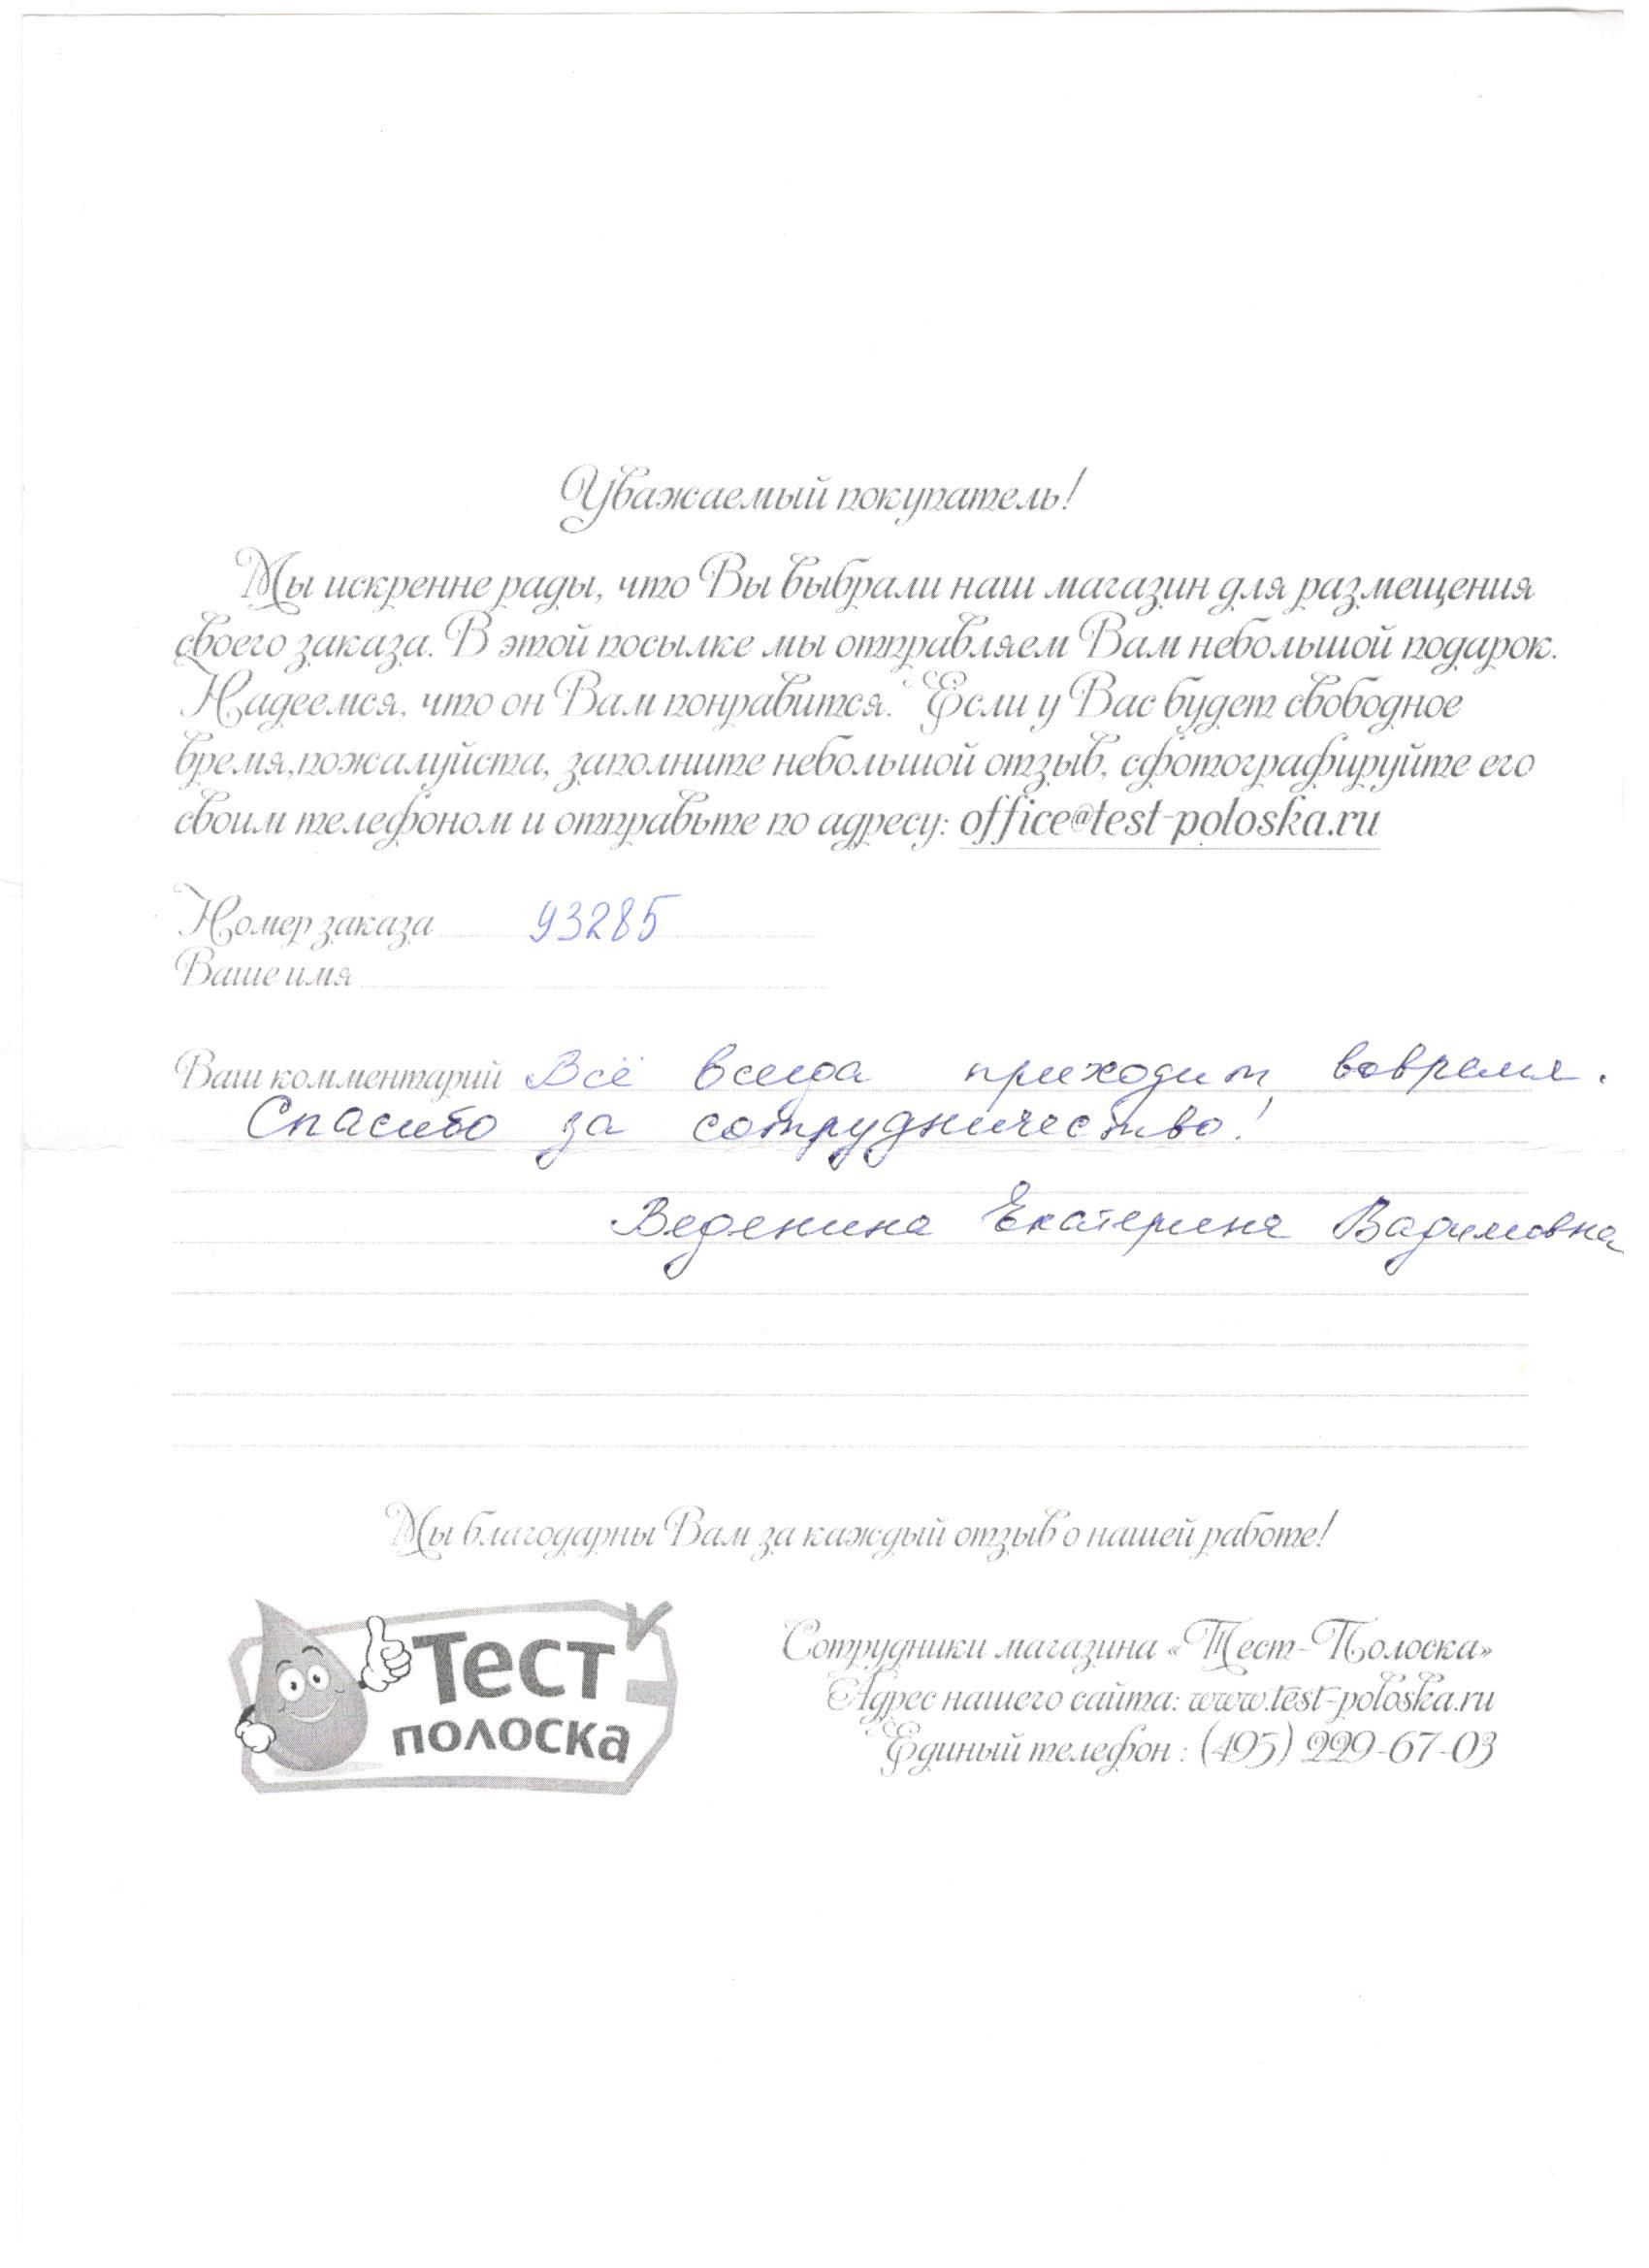 Уважаемый покупатель!
Мы искренне рады, что Вы выбрали наш магазин для размещения
своего заказа. В этой посылке мы отправляем Вам небольшой подарок.
Надеемся, что он Вам понравится. Если у Вас будет свободное
время,пожалуйста, заполните небольшой отзыв, сфотографируйте его
своим телефоном и отправьте по адресу: office@test-poloska.ru
Номер заказа 93285
Ваше имя
Ваш комментарий Всё всегда приходит вовремя.
Спасибо за сотрудничество!
Веденина Екатерина Вадимовна
Мы благодарны Вам за каждый отзыв о нашей работе!
Тест
полоска
Сотрудники магазина «Тест-Полоска»
Адрес нашего сайта: www.test-poloska.ru
Единый телефон : (495) 229-67-03